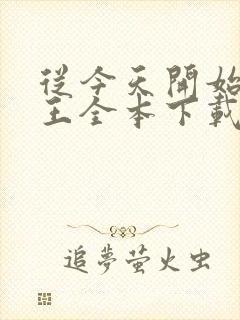 從今天開始
王全本下載
追夢萤火虫